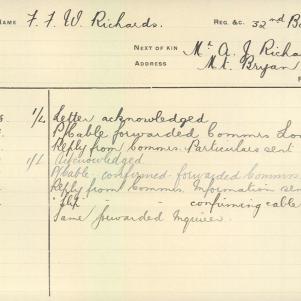 NAME F. F. W. Richards. REG. &C. 32nd Ba
NEXT OF KIN Mr A. J. Richa
ADDRESS Mt. Bryan
1/L Letter acknowledged
P/Cable forwarded Commrs Lon
Reply from Commrs. Particulars sent
1/L Acknowledged
P/Cable confirmed - forwarded Commrs
Reply from Commrs Information sen
" " " confirming cable
Same forwarded Inquirer.